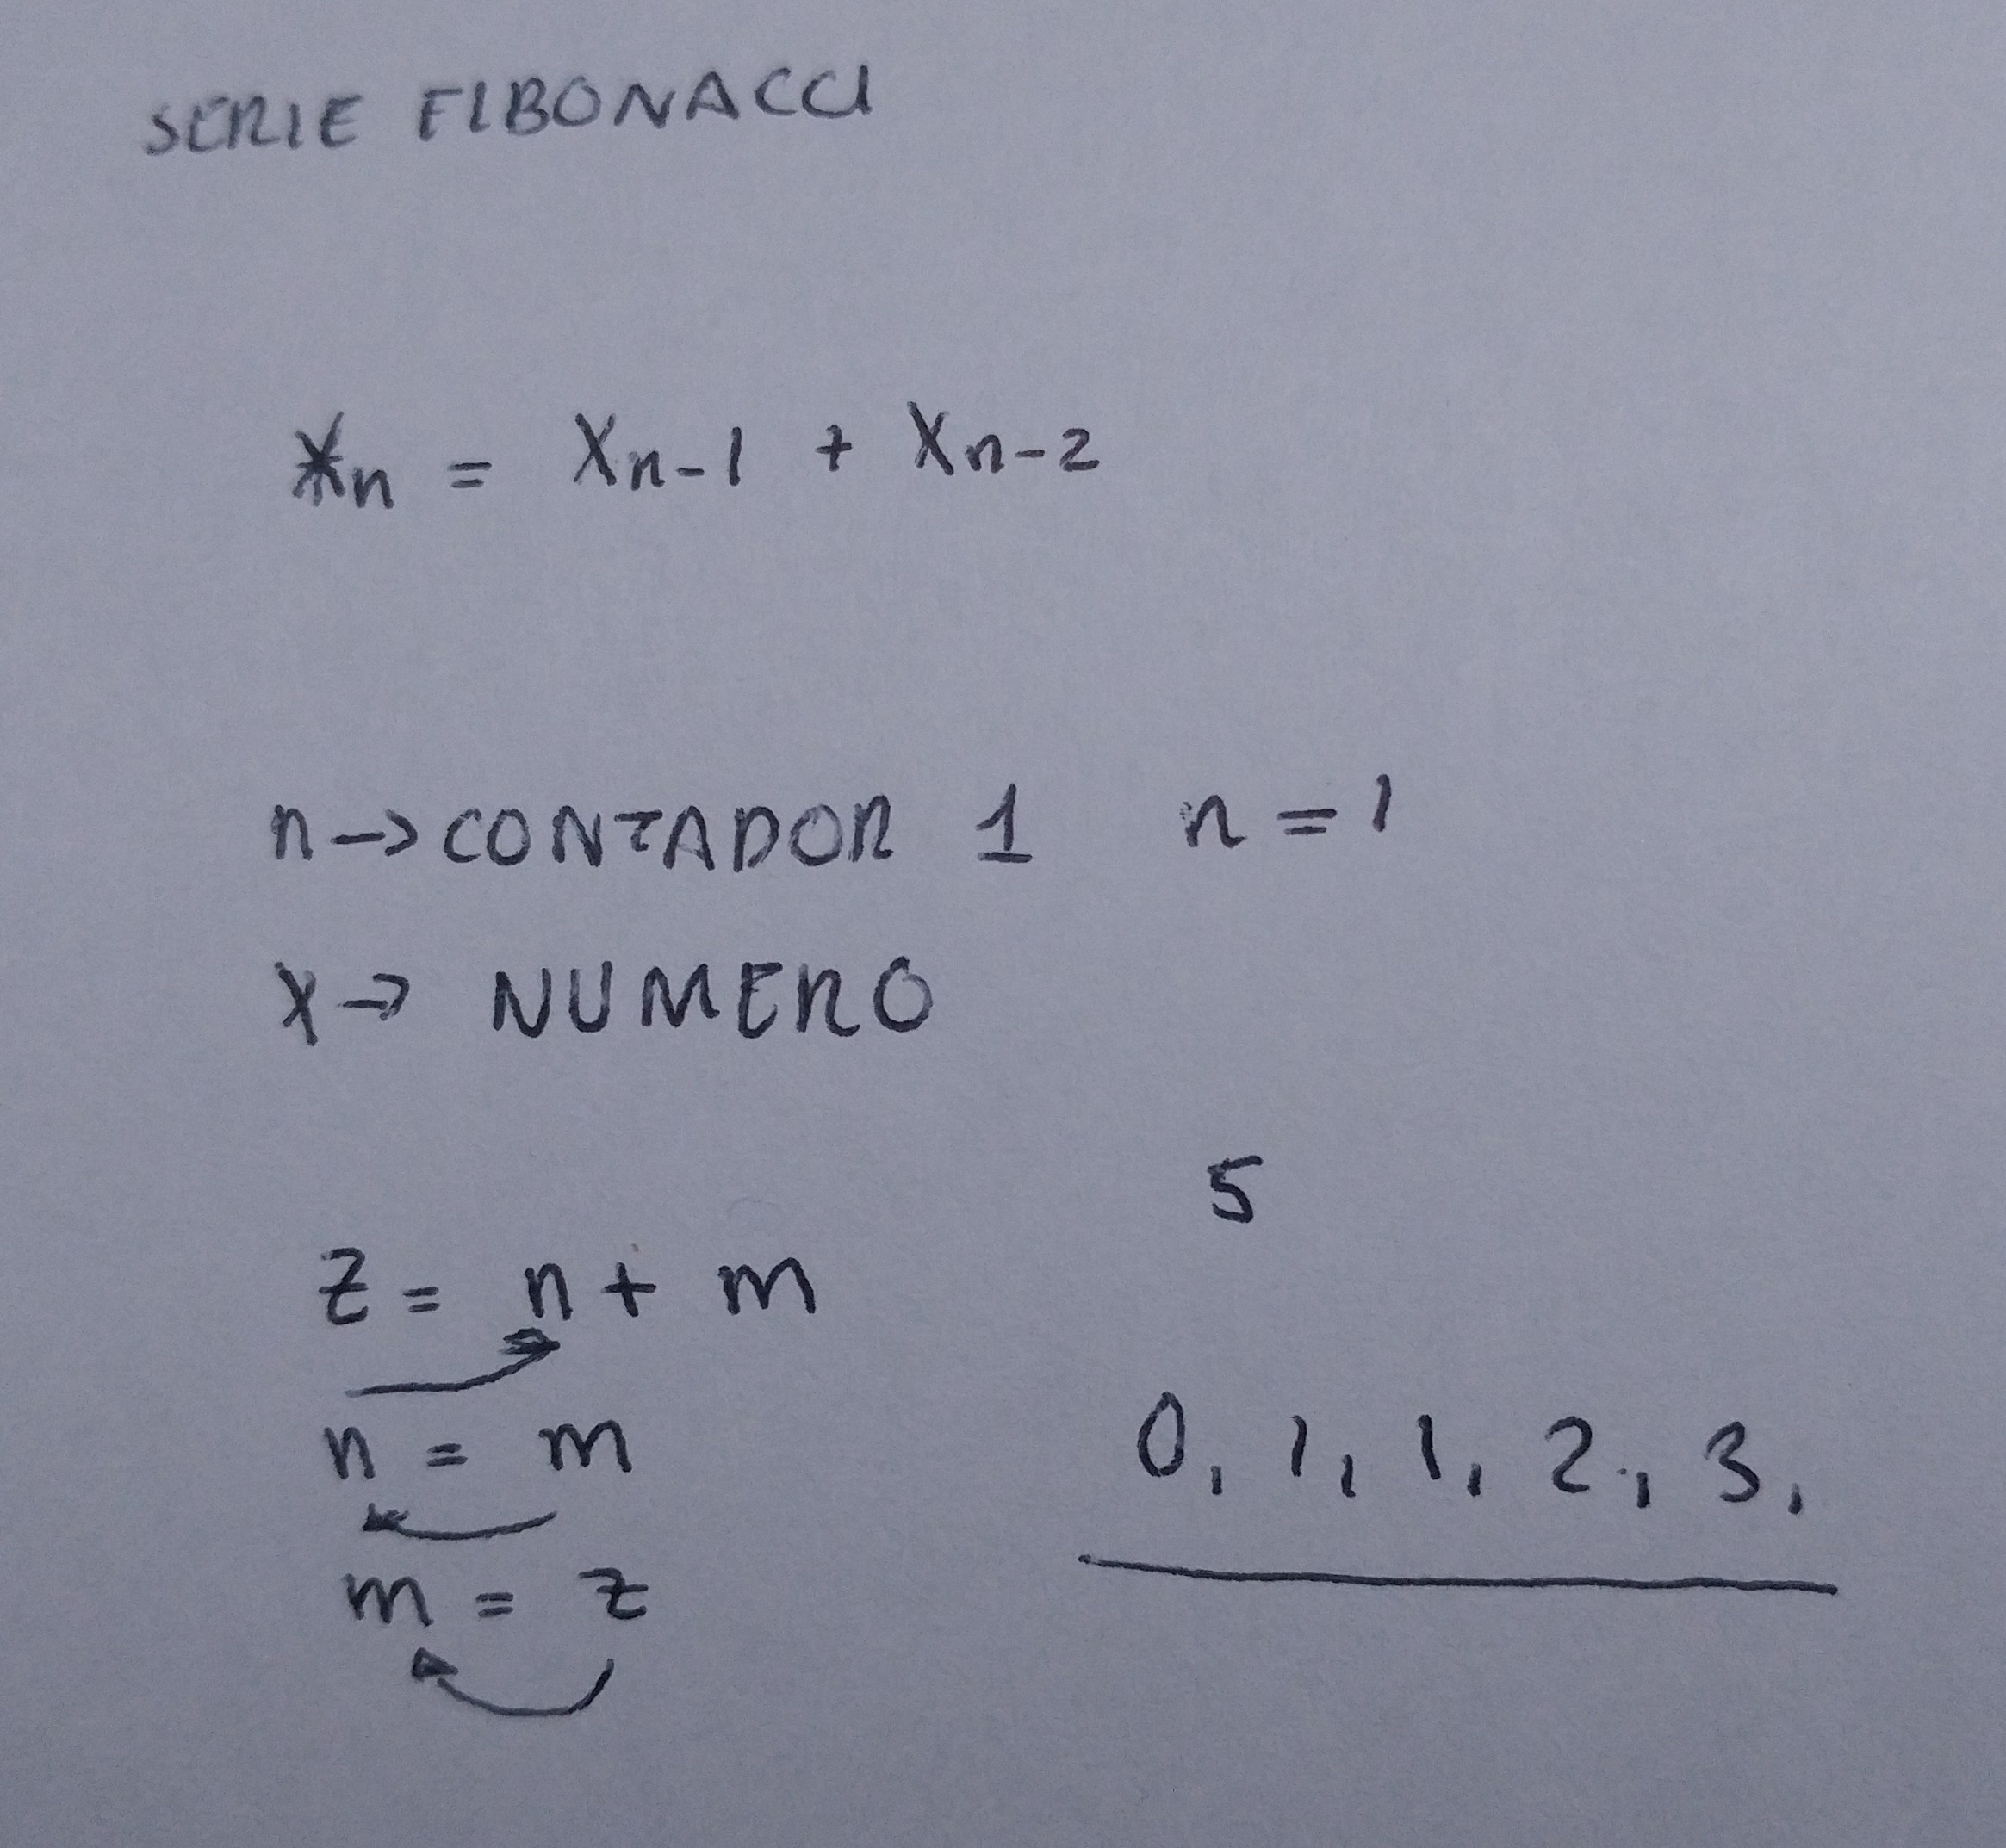 SERIE FIBONACCI
Xn = Xn-1 + Xn-2
n -> CONTADOR 1 n = 1
X -> NUMERO
5
z = n + m
n = m
0, 1, 1, 2, 3,
m = z